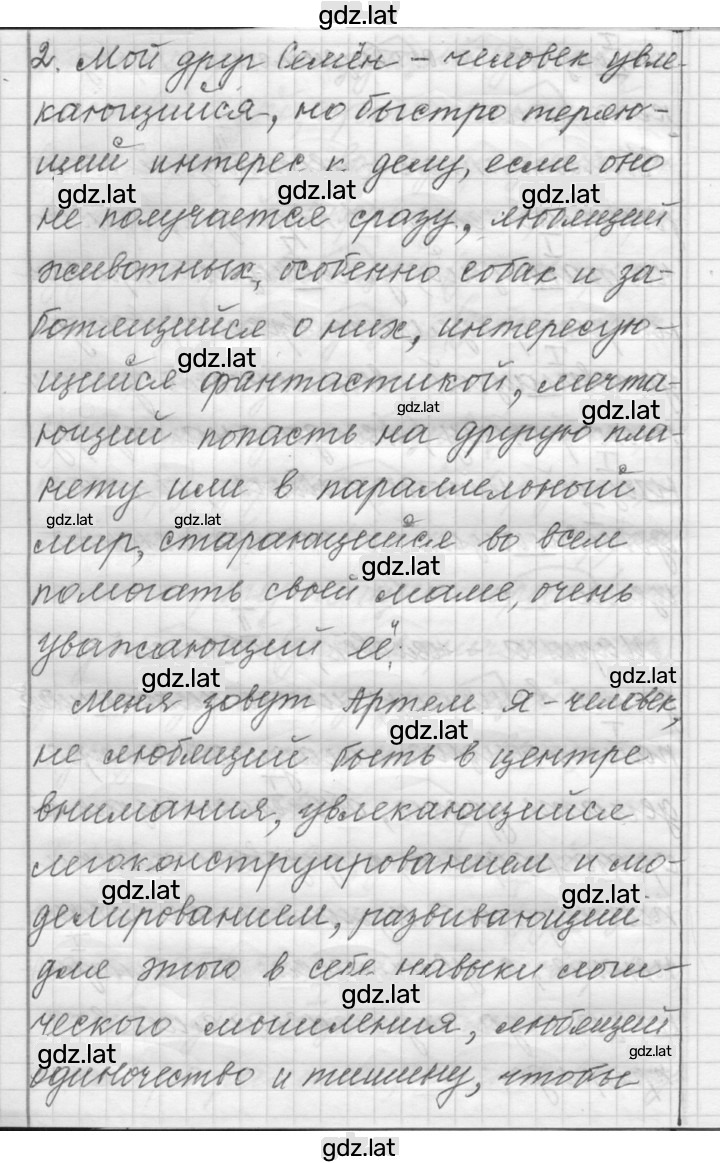 gdz.lat
2. Мой друг Семён – человек увле-
кающийся, но быстро теряю-
щий интерес к делу, если оно
gdz.lat gdz.lat gdz.lat
не получается сразу, любящий
животных, особенно собак и за-
ботящийся о них, интересую-
gdz.lat
щийся фантастикой, мечта-
gdz.lat gdz.lat
ющий попасть на другую пла-
нету или в параллельный
gdz.lat gdz.lat
мир, старающийся во всем
gdz.lat
помогать своей маме, очень
уважающий её.
gdz.lat gdz.lat
Меня зовут Артем. Я – человек,
gdz.lat
не любящий быть в центре
внимания, увлекающийся
легоконструированием и мо-
gdz.lat gdz.lat
делированием, развивающий
для этого в себе навыки логи-
gdz.lat
ческого мышления, любящий
gdz.lat gdz.lat
одиночество и тишину, чтобы
gdz.lat